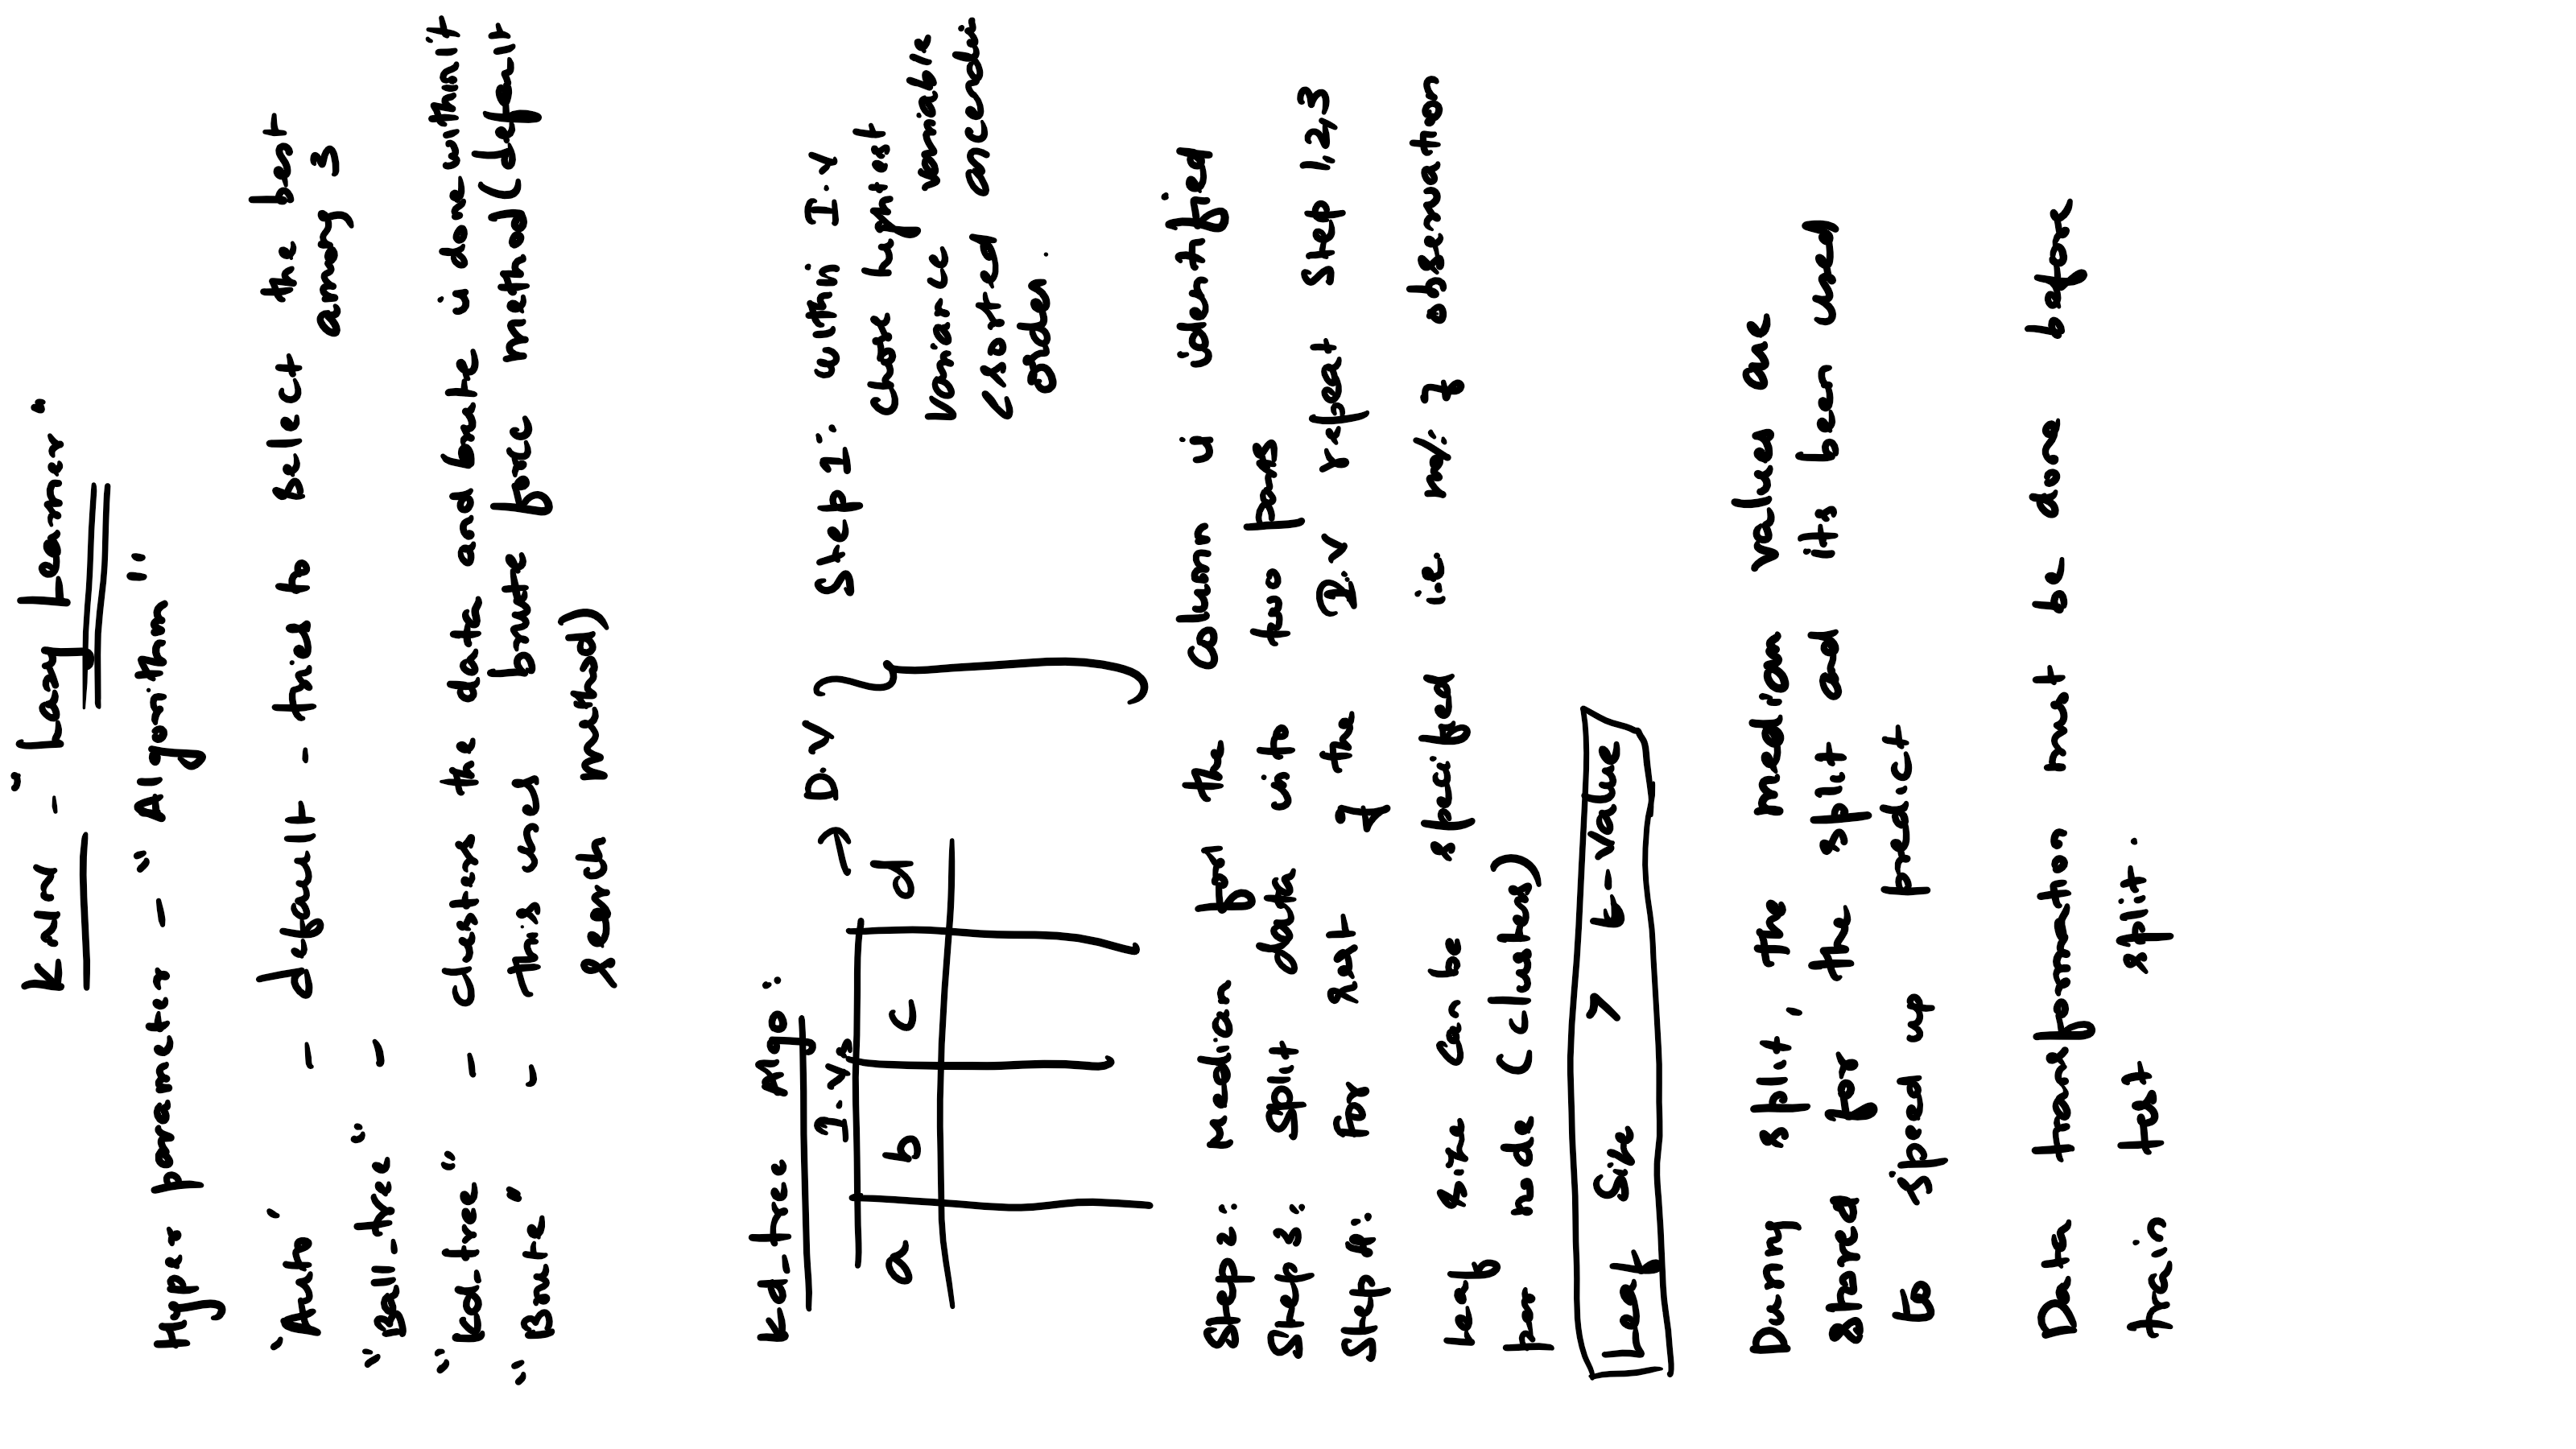 KNN - "Lazy Learner"
Hyper parameter - "Algorithm"
'Auto' - default - tries to select the best
among 3
"Ball_tree" -
"Kd_tree" - clusters the data and brute is done within it
"Brute" - this uses brute force method (default
search method)
Kd_tree Algo:
I.Vs → D.V
a b c d
Step 1: within I.V
chose highest
variance variable
(sorted ascendin
order.
Step 2: Median for the column is identified
Step 3: Split data into two parts
Step 4: For rest of the I.V repeat Step 1,2,3
Leaf size can be specified i.e no: of observation
per node (clusters)
Leaf Size > k-value
During split, the median values are
stored for the split and its been used
to speed up predict
Data transformation must be done before
train test split.